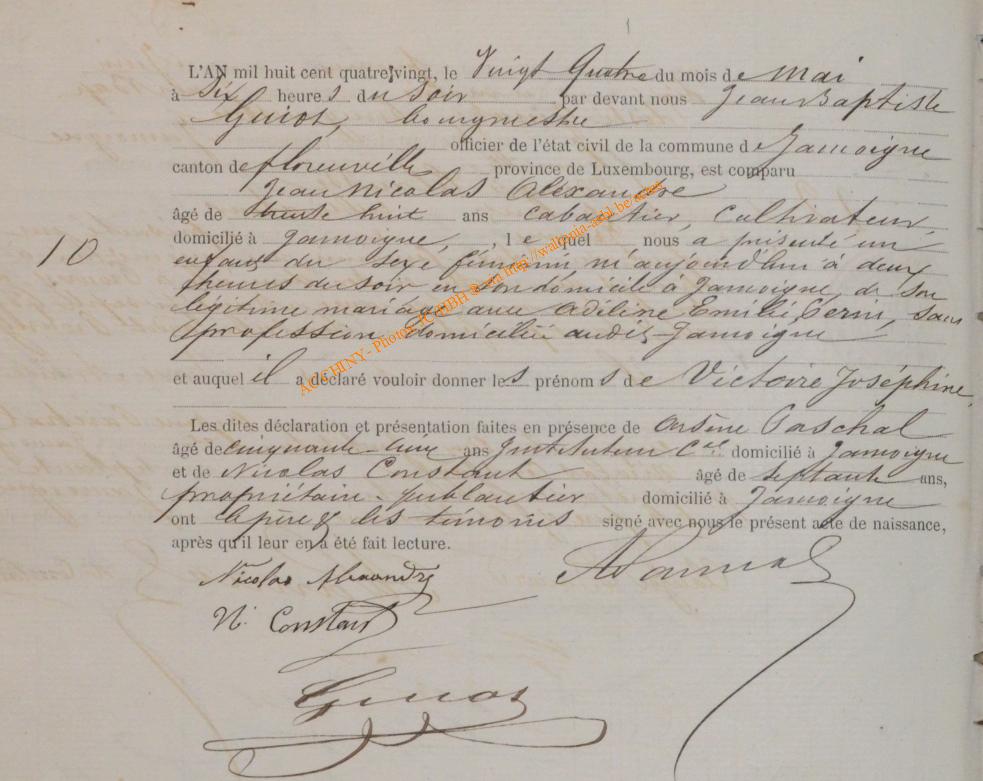 L'AN mil huit cent quatre-vingt, le Vingt Quatre du mois de Mai
à Six heures du Soir par devant nous Jean Baptiste
Guiot, bourgmestre
officier de l'état civil de la commune de Jamoigne
canton de florenville province de Luxembourg, est comparu
Jean Nicolas Alexandre
âgé de trente huit ans cabartier, cultivateur,
domicilié à Jamoigne, , lequel nous a présenté un
10
enfant du sexe féminin, né aujourd'hui à deux
heures du soir en son domicile à Jamoigne, de son
légitime mariage avec Adeline Emilie sans
profession, domiciliée audit Jamoigne
et auquel il a déclaré vouloir donner les prénoms de Victoire Joséphine,
Les dites déclaration et présentation faites en présence de Arsène Paschal
âgé de cinquante-cinq ans Instituteur Cal domicilié à Jamoigne
et de Nicolas Constant âgé de septante ans,
propriétaire domicilié à Jamoigne
ont le père & les témoins signé avec nous le présent acte de naissance,
après qu'il leur en a été fait lecture.
Nicolas Alexandre
N. Constant
Guiot
AC CHINY - Photos ICHIBH @ via http://wallonia-asbl.be/actes